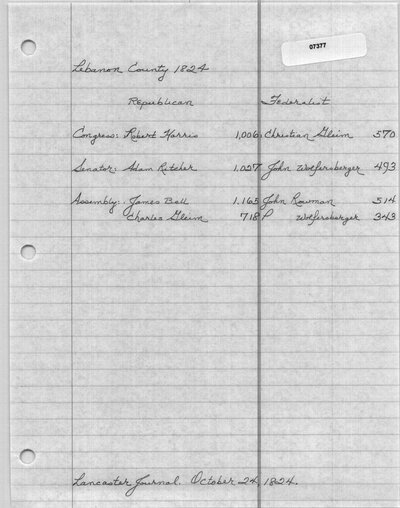 07377
Lebanon County 1824
Republican Federalist
Congress: Robert Harris 1,006 Christian Gleim 570
Senator: Adam Ritcher 1,027 John Wolfersberger 493
Assembly: James Bell 1,165 John Rowman 514
Charles Gleim 718 P Wolfersberger 343
Lancaster Journal. October 24, 1824.